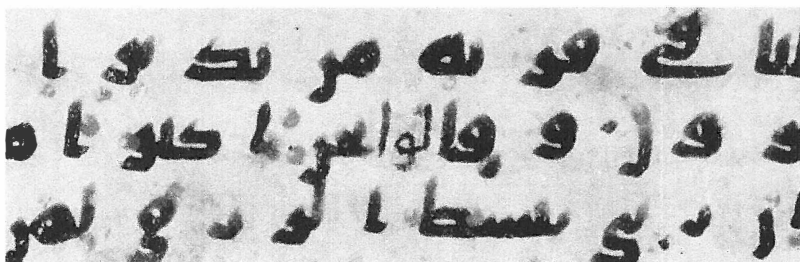 لنا في قر ية من نذير ا
فر و ن و قالوا نحن ا كثر ا مو
ن ر بي يبسط ا لر ز ق لمن